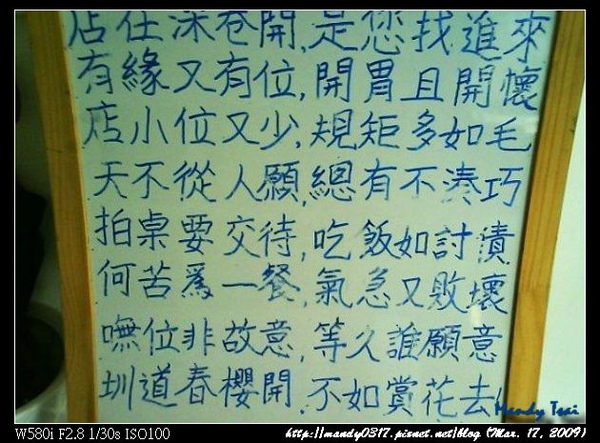 店在深巷開,是您找進來
有緣又有位,開胃且開懷
店小位又少,規矩多如毛
天不從人願,總有不湊巧
拍桌要交待,吃飯如討債
何苦爲一餐,氣急又敗壞
嘸位非故意,等久誰願意
圳道春櫻開,不如賞花去!
Mandy Tsai
W580i F2.8 1/30s ISO100
http://mandy0317.pixnet.net/blog (Mar. 17, 2009)